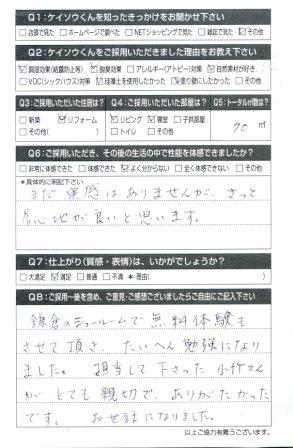 Q1：ケイソウくんを知ったきっかけをお聞かせ下さい
□店頭で見た □ホームページで調べた □NETショッピングで見た □雑誌で見た ☑その他
Q2：ケイソウくんをご採用いただきました理由をお教え下さい
☑調湿効果(結露防止等) ☑脱臭効果 □アレルギー(アトピー)対策 ☑自然素材が好き
□VOC(シックハウス)対策 □モデルルームを見て ☑塗り壁にしたかった □その他
Q3：ご採用いただいた住居は？
□新築 ☑リフォーム
□その他( )
Q4：ご採用いただいた部屋は？
☑リビング ☑寝室 □子供部屋
□トイレ □その他
Q5：トータル㎡数は？
70 ㎡
Q6：ご採用いただき、その後の生活の中で性能を体感できましたか？
□非常に体感できた □体感できた ☑よく分からない □全く体感できない □その他
*具体的に明記下さい
まだ実感はありませんが、きっと
居心地が良いと思います。
Q7：仕上がり(質感・表情)は、いかがでしょうか？
□大満足 ☑満足 □普通 □不満 *理由( )
Q8：ご採用～後を含め、ご意見・ご感想ございましたらご自由にご記入下さい
鎌倉のショールームで無料体験も
させて頂き、たいへん勉強になり
ました。担当して下さった小作さん
がとても親切で、ありがたかった
です。 お世話になりました。
以上ご協力有難うございます。